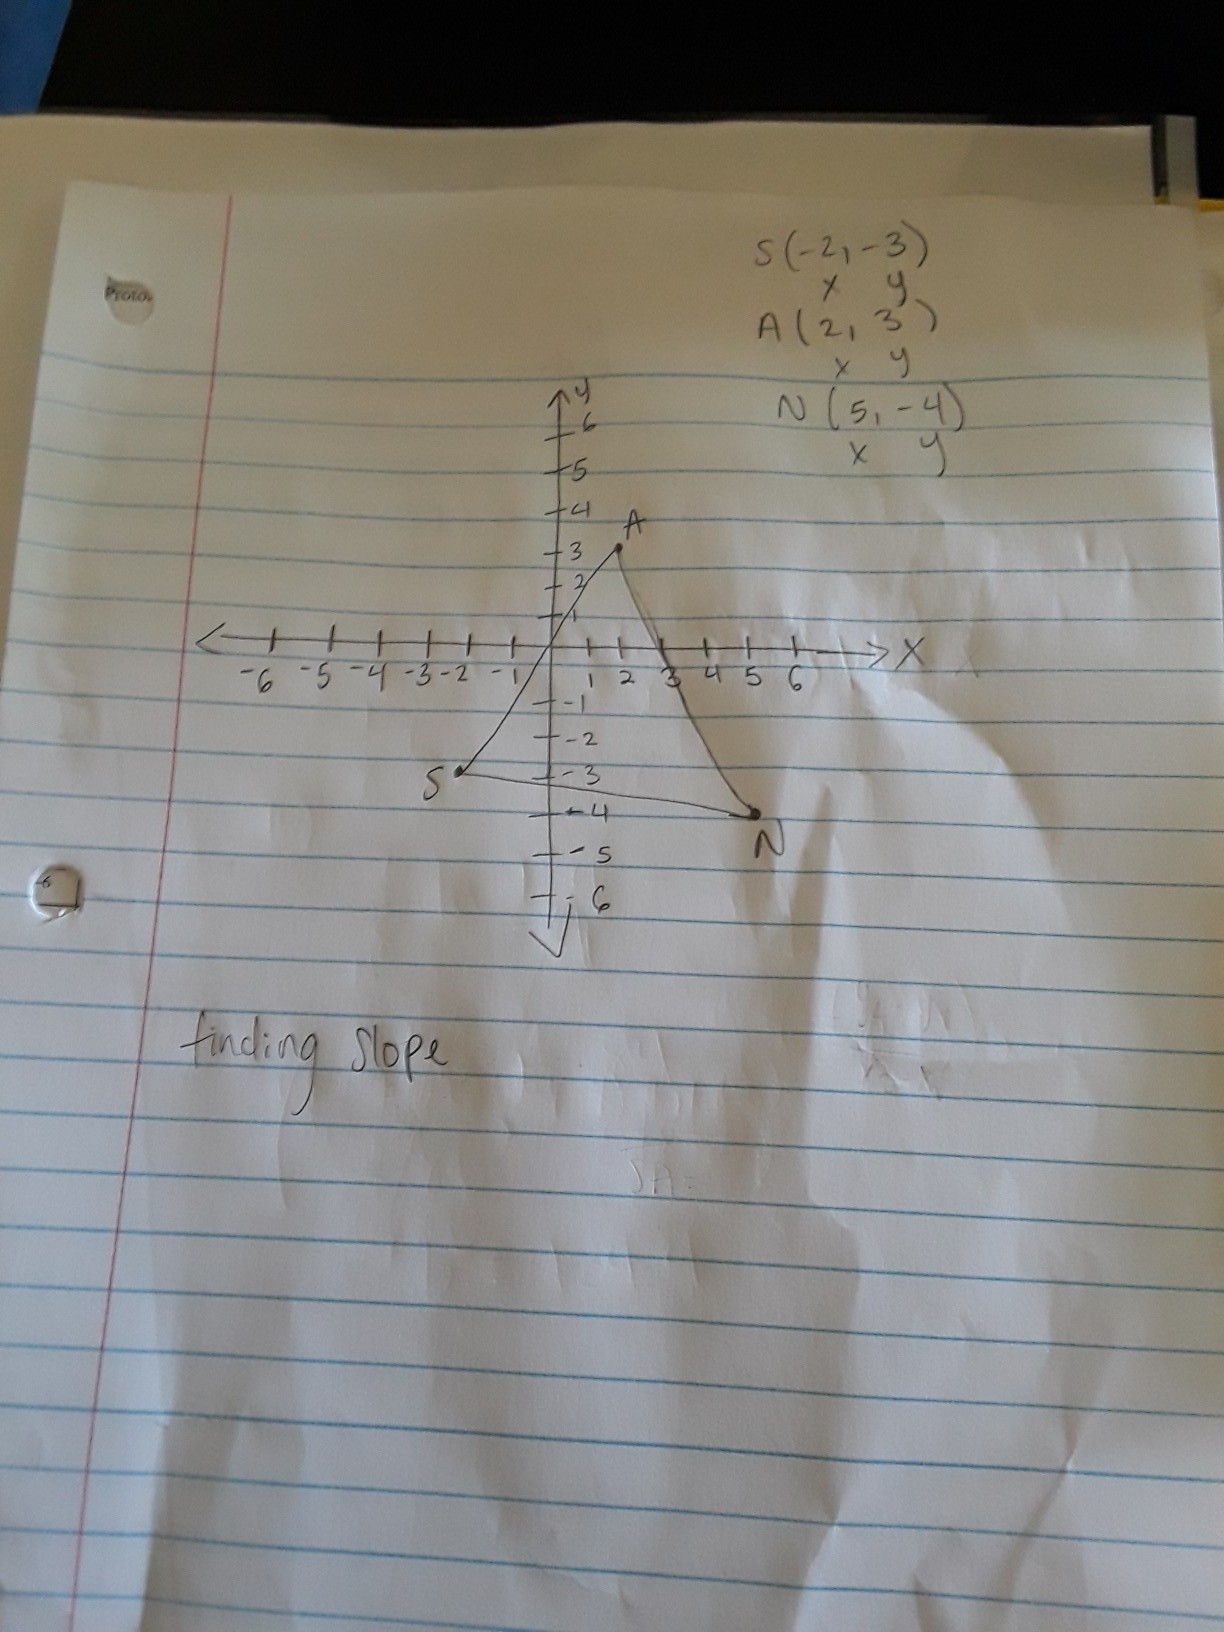 Proto
S(-2, -3)
x y
A(2, 3)
x y
N(5, -4)
x y
y
6
5
4
A
3
2
1
X
-6 -5 -4 -3 -2 -1 1 2 3 4 5 6
-1
-2
S
-3
-4
N
-5
-6
6
finding slope
SA=